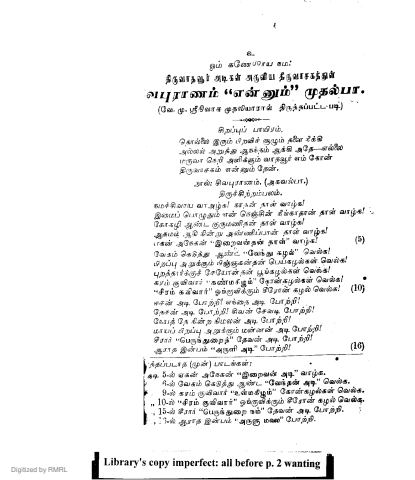 உ
ஓம் கணேசாய நம:
திருவாதவூர் அடிகள் அருளிய திருவாசகத்துள்
வபுராணம் "என்னும்" முதல்பா.
(வே. மு. ஸ்ரீநிவாச முதலியாரால் திருந்தப்பட்ட-படி)
சிறப்புப் பாயிரம்.
தொல்லை இரும் பிறவிச் சூழும் தளை நீக்கி
அல்லல் அறுத்து ஆநந்தம் ஆக்கி அதே—எல்லை
மருவா நெறி அளிக்கும் வாதவூர் எம் கோன்
திருவாசகம் என்னும் தேன்.
நூல்: சிவபுராணம். (அகவல்பா.)
திருச்சிற்றம்பலம்.
நமச்சிவாய வாஅழ்க! நாதன் தாள் வாழ்க!
இமைப் பொழுதும் என் நெஞ்சின் நீங்காதான் தாள் வாழ்க!
கோகழி ஆண்ட குருமணிதன் தாள் வாழ்க!
ஆகமம் ஆகி நின்று அண்ணிப்பான் தாள் வாழ்க!
மகன் அநேகன் "இறைவன்தன் தாள்" வாழ்க! (5)
வேகம் கெடுத்து ஆண்ட "வேந்து கழல்" வெல்க!
பிறப்பு அறுக்கும் பிஞ்ஞகன்தன் பெய்கழல்கள் வெல்க!
புறத்தார்க்குச் சேயோன்தன் பூங்கழல்கள் வெல்க!
கரம் குவிவார் "கண்மகிழும்" கோன்கழல்கள் வெல்க!
"சிரம் குவிவார்" ஓங்குவிக்கும் சீரோன் கழல் வெல்க! (10)
ஈசன் அடி போற்றி! எந்தை அடி போற்றி!
நேசன் அடி போற்றி! சிவன் சேவடி போற்றி!
நேயத் தே நின்ற நிமலன் அடி போற்றி!
மாயப் பிறப்பு அறுக்கும் மன்னன் அடி போற்றி!
சீரார் "பெருந்துறைத்" தேவன் அடி போற்றி!
ஆராத இன்பம் "அருளி அடி" போற்றி! (16)
ந்தப்படாத (முன்) பாடங்கள்:
அடி 5-ல் ஏகன் அநேகன் "இறைவன் அடி" வாழ்க.
6-ல் வேகம் கெடுத்து ஆண்ட "வேந்தன் அடி" வெல்க.
,, 9-ல் கரம் குவிவார் "உள்மகிழும்" கோன்கழல்கள் வெல்க.
,, 10-ல் "சிரம் குவிவார்" ஓங்குவிக்கும் சீரோன் கழல் வெல்க.
,, 15-ல் சீரார் "பெருந்துறை நம்" தேவன் அடி போற்றி.
,, 16-ல் ஆராத இன்பம் "அருளு மலை" போற்றி.
Digitized by RMRL
Library's copy imperfect: all before p. 2 wanting